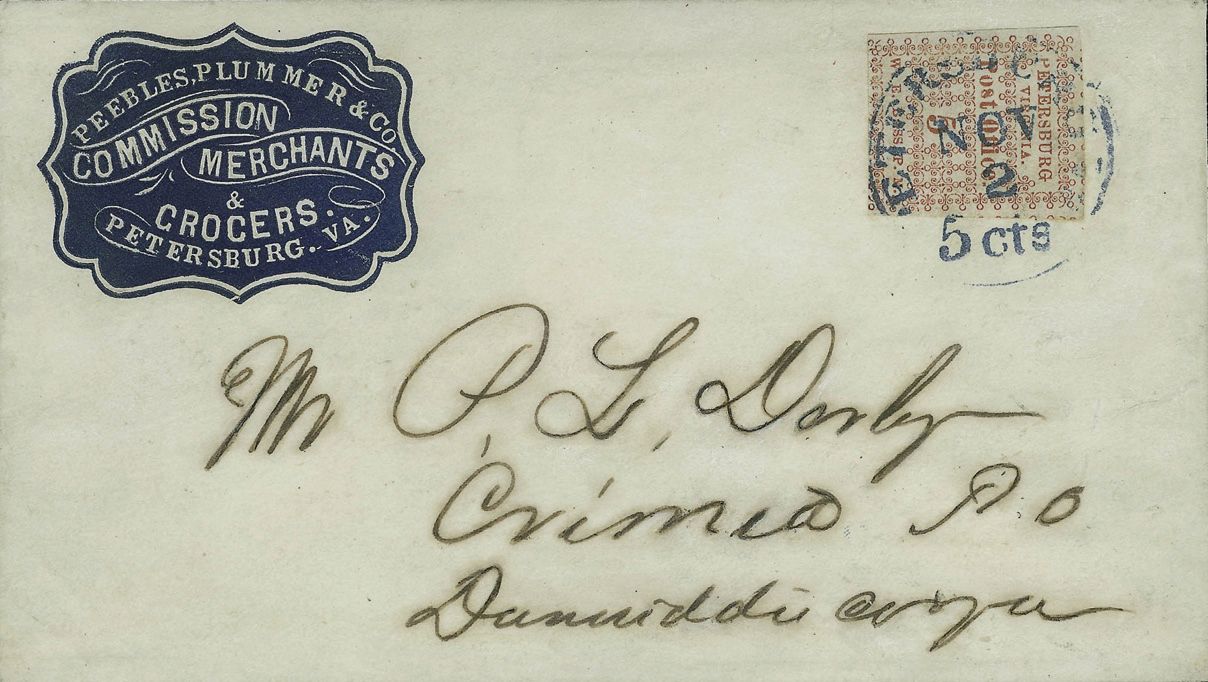 PEEBLES, PLUMMER & CO
COMMISSION
MERCHANTS
&
GROCERS.
PETERSBURG. VA.
PETERSBURG
VIRGINIA
Post Office
5
W. E. Bass. P.
NOV
2
5 cts
Mr P. L. Derby
Crimea P.O
Dinwiddie co Va